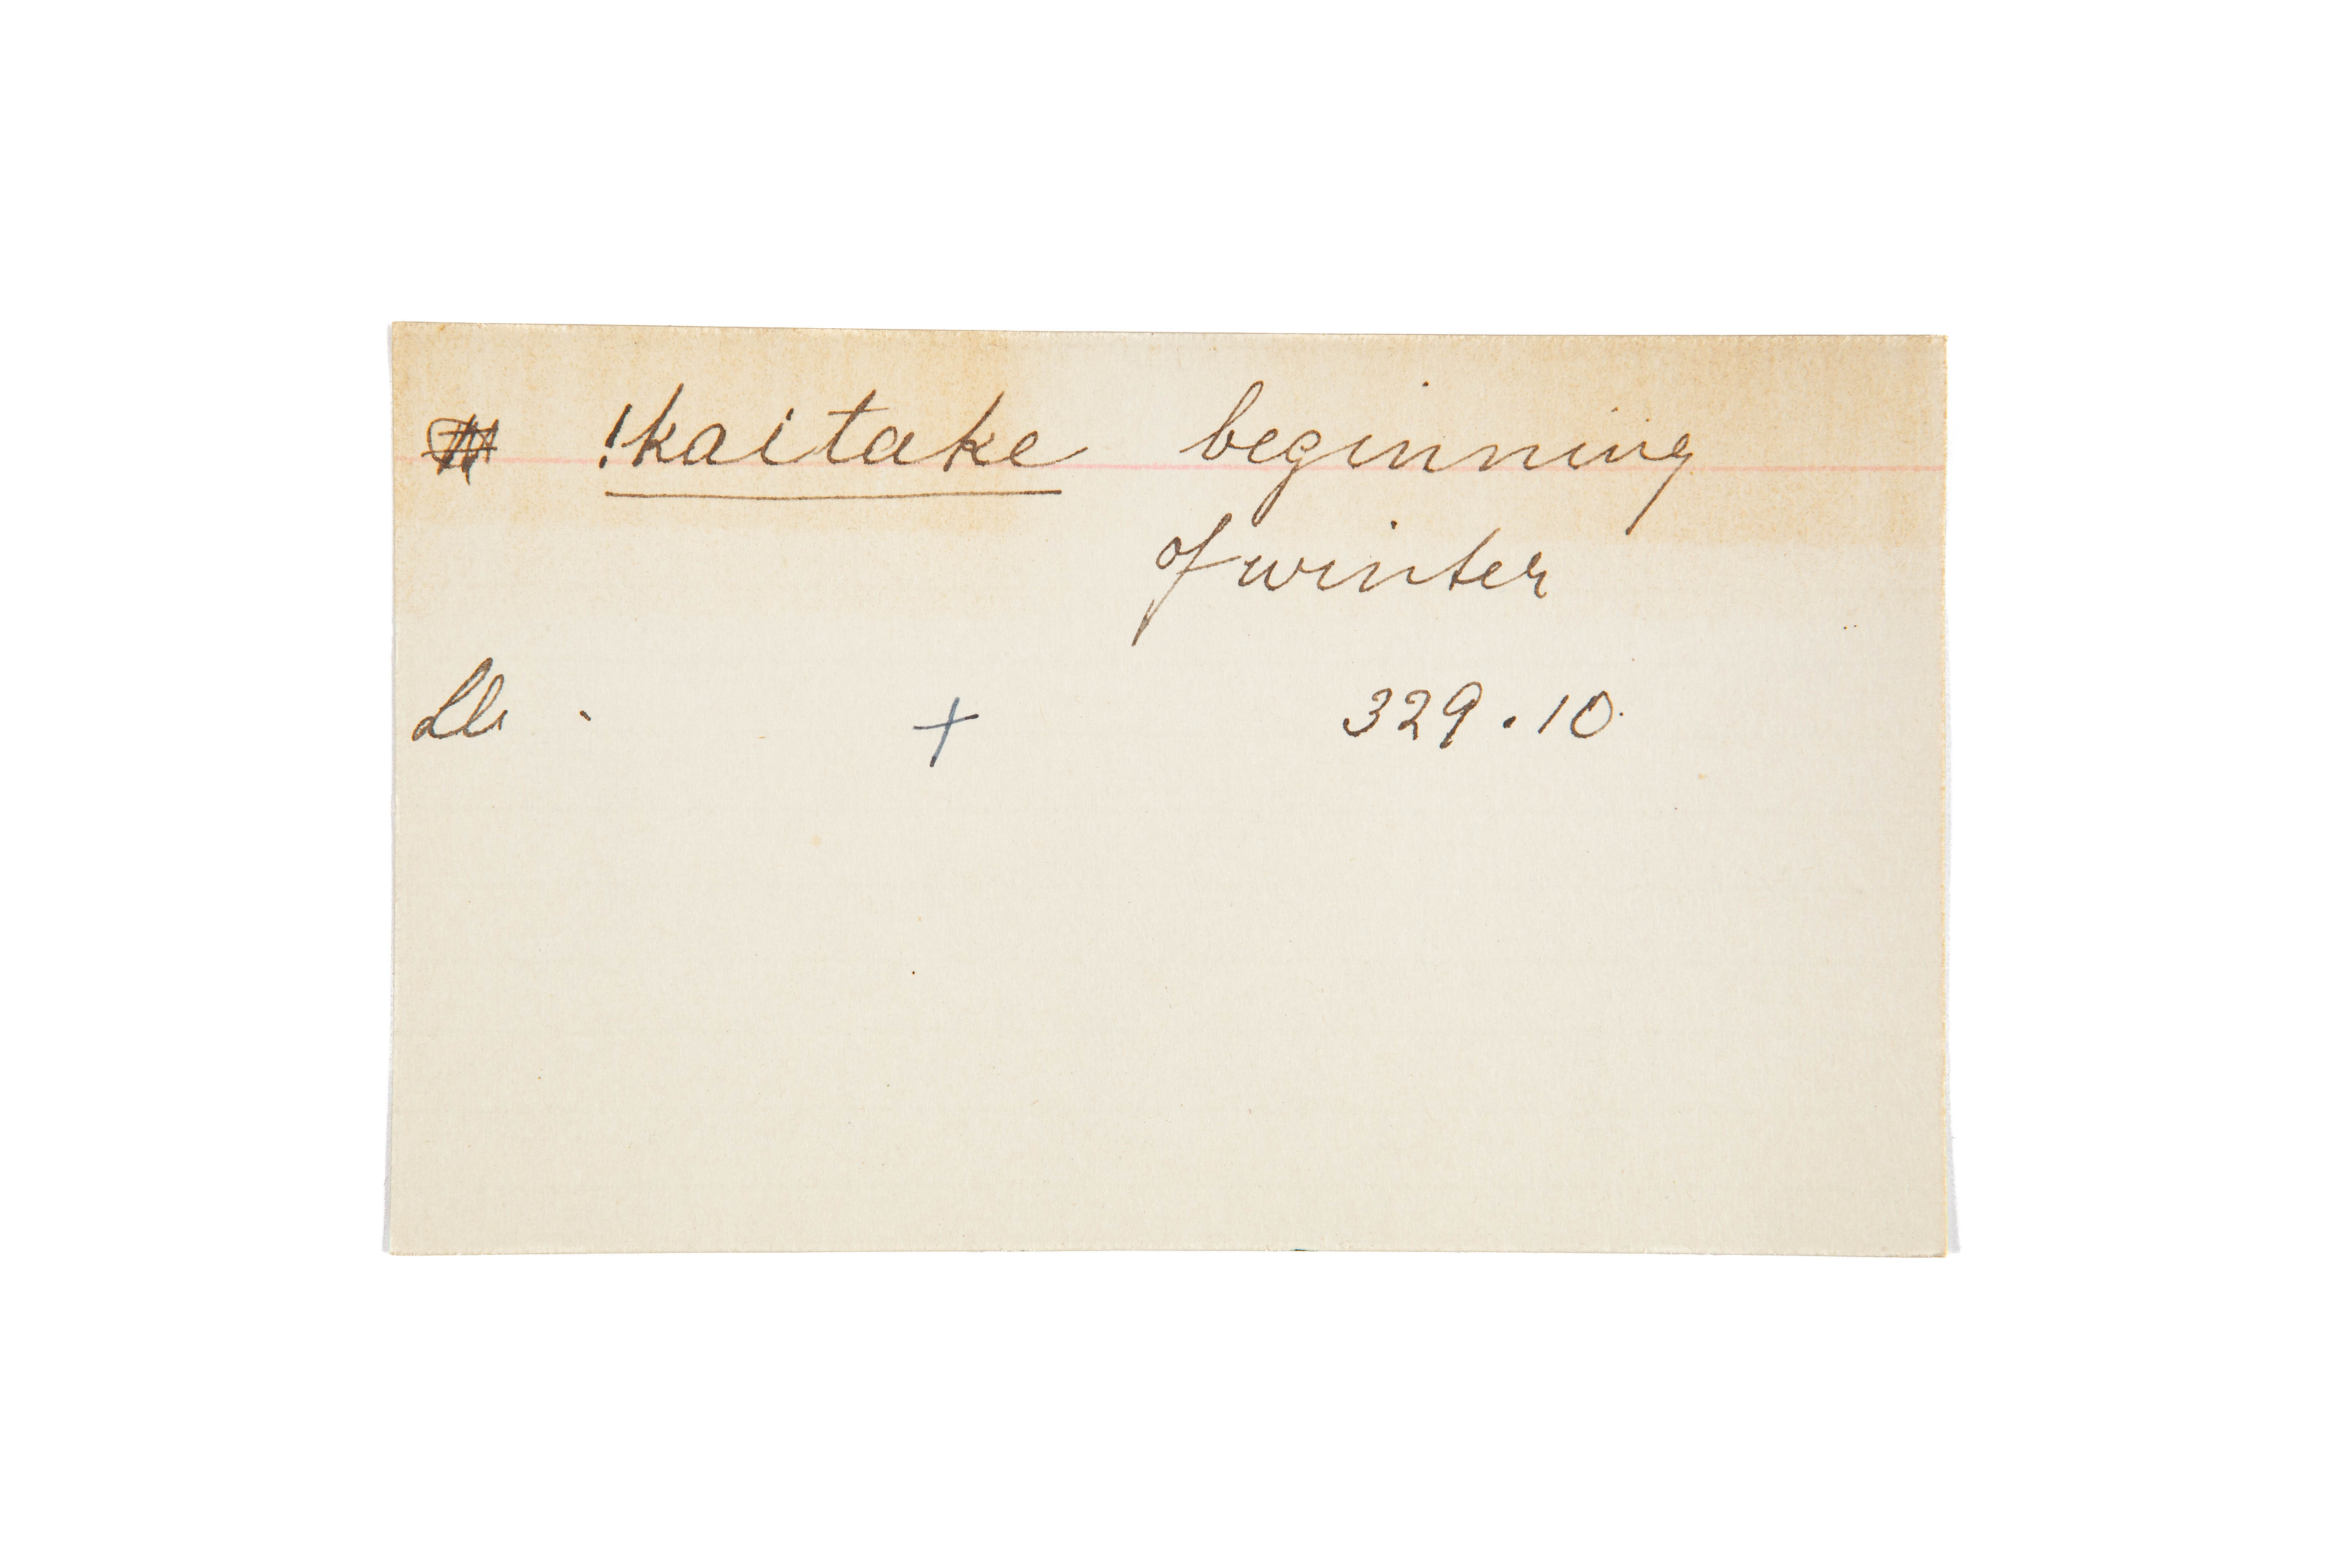 !kaitake beginning
of winter
Ll. + 329.10.